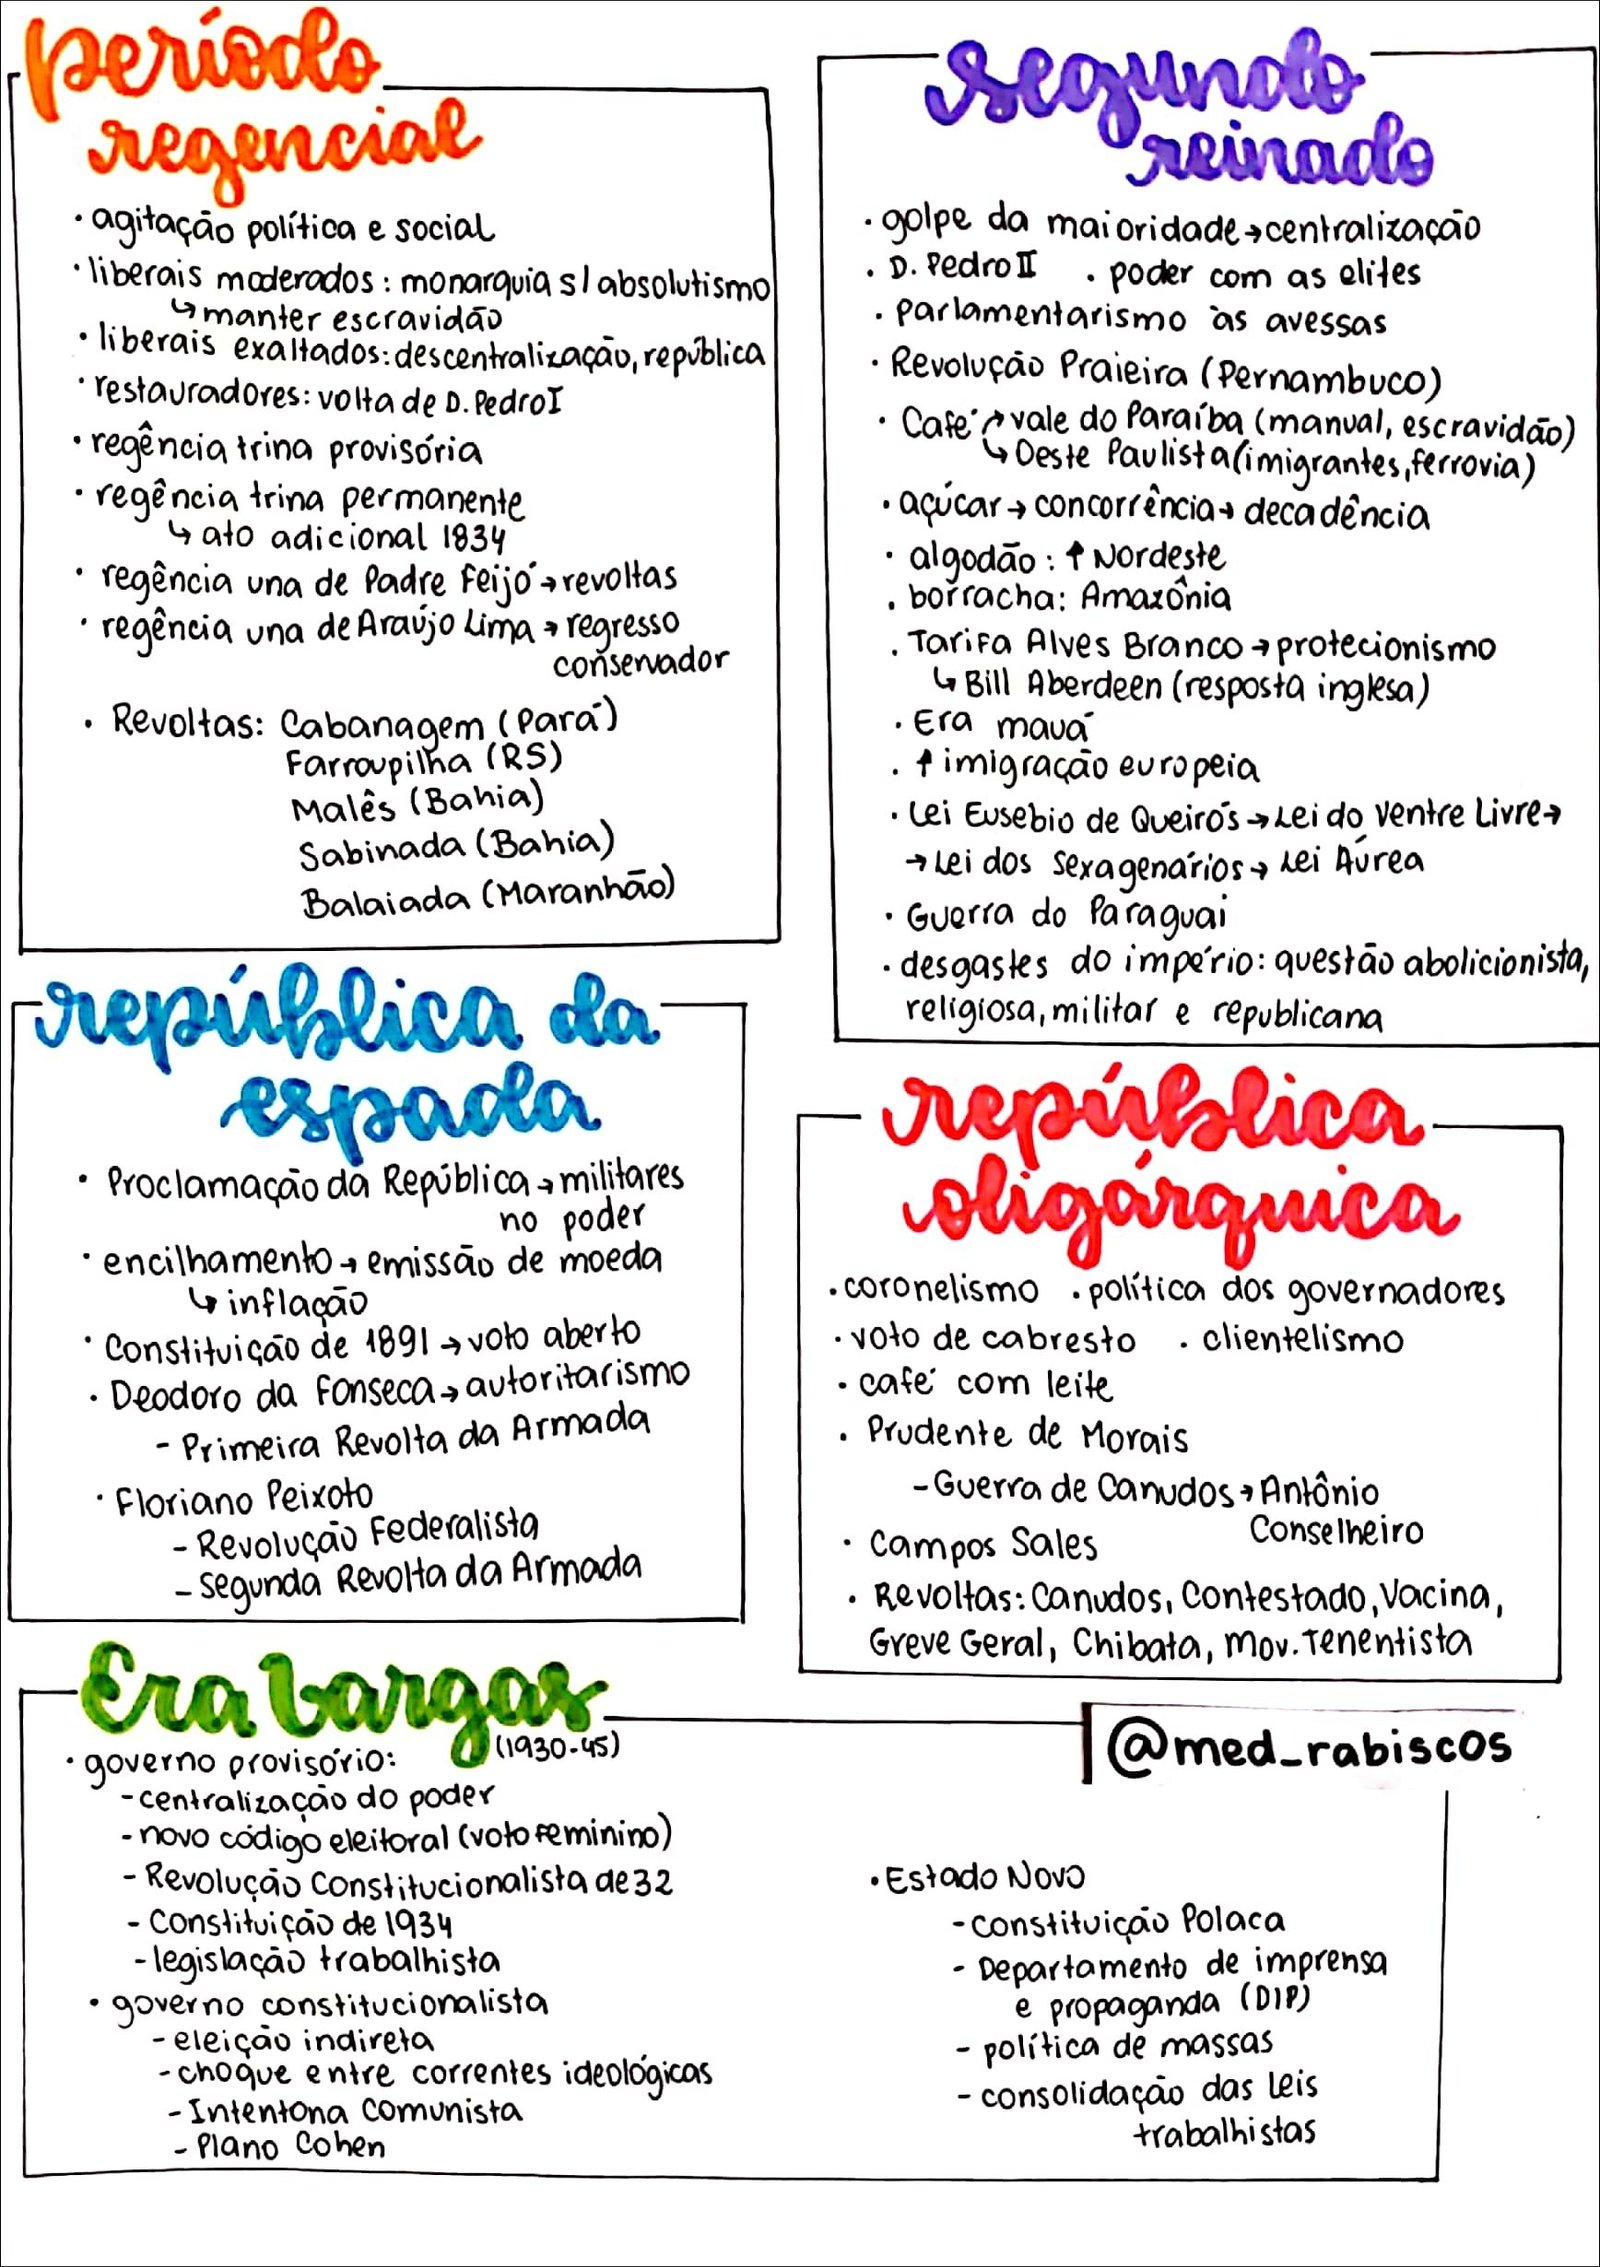 período
regencial
· agitação política e social
· liberais moderados: monarquia s/ absolutismo
↳ manter escravidão
· liberais exaltados: descentralização, república
· restauradores: volta de D. Pedro I
· regência trina provisória
· regência trina permanente
↳ ato adicional 1834
· regência una de Padre Feijó → revoltas
· regência una de Araújo Lima → regresso
conservador
· Revoltas: Cabanagem (Pará)
Farroupilha (RS)
Malês (Bahia)
Sabinada (Bahia)
Balaiada (Maranhão)
segundo
reinado
· golpe da maioridade → centralização
· D. Pedro II · poder com as elites
· Parlamentarismo às avessas
· Revolução Praieira (Pernambuco)
· Café ↱ vale do Paraíba (manual, escravidão)
↳ Oeste Paulista (imigrantes, ferrovia)
· açúcar → concorrência → decadência
· algodão: ↑ Nordeste
· borracha: Amazônia
· Tarifa Alves Branco → protecionismo
↳ Bill Aberdeen (resposta inglesa)
· Era mauá
· ↑ imigração europeia
· Lei Eusébio de Queirós → Lei do Ventre Livre →
→ Lei dos Sexagenários → Lei Áurea
· Guerra do Paraguai
· desgastes do império: questão abolicionista,
religiosa, militar e republicana
república da
espada
· Proclamação da República → militares
no poder
· encilhamento → emissão de moeda
↳ inflação
· Constituição de 1891 → voto aberto
· Deodoro da Fonseca → autoritarismo
- Primeira Revolta da Armada
· Floriano Peixoto
- Revolução Federalista
- Segunda Revolta da Armada
república
oligárquica
· coronelismo · política dos governadores
· voto de cabresto · clientelismo
· café com leite
· Prudente de Morais
- Guerra de Canudos → Antônio
Conselheiro
· Campos Sales
· Revoltas: Canudos, Contestado, Vacina,
Greve Geral, Chibata, Mov. Tenentista
Era Vargas
(1930-45)
@med_rabiscos
· governo provisório:
- centralização do poder
- novo código eleitoral (voto feminino)
- Revolução Constitucionalista de 32
- Constituição de 1934
- legislação trabalhista
· governo constitucionalista
- eleição indireta
- choque entre correntes ideológicas
- Intentona Comunista
- Plano Cohen
· Estado Novo
- Constituição Polaca
- Departamento de imprensa
e propaganda (DIP)
- política de massas
- consolidação das leis
trabalhistas